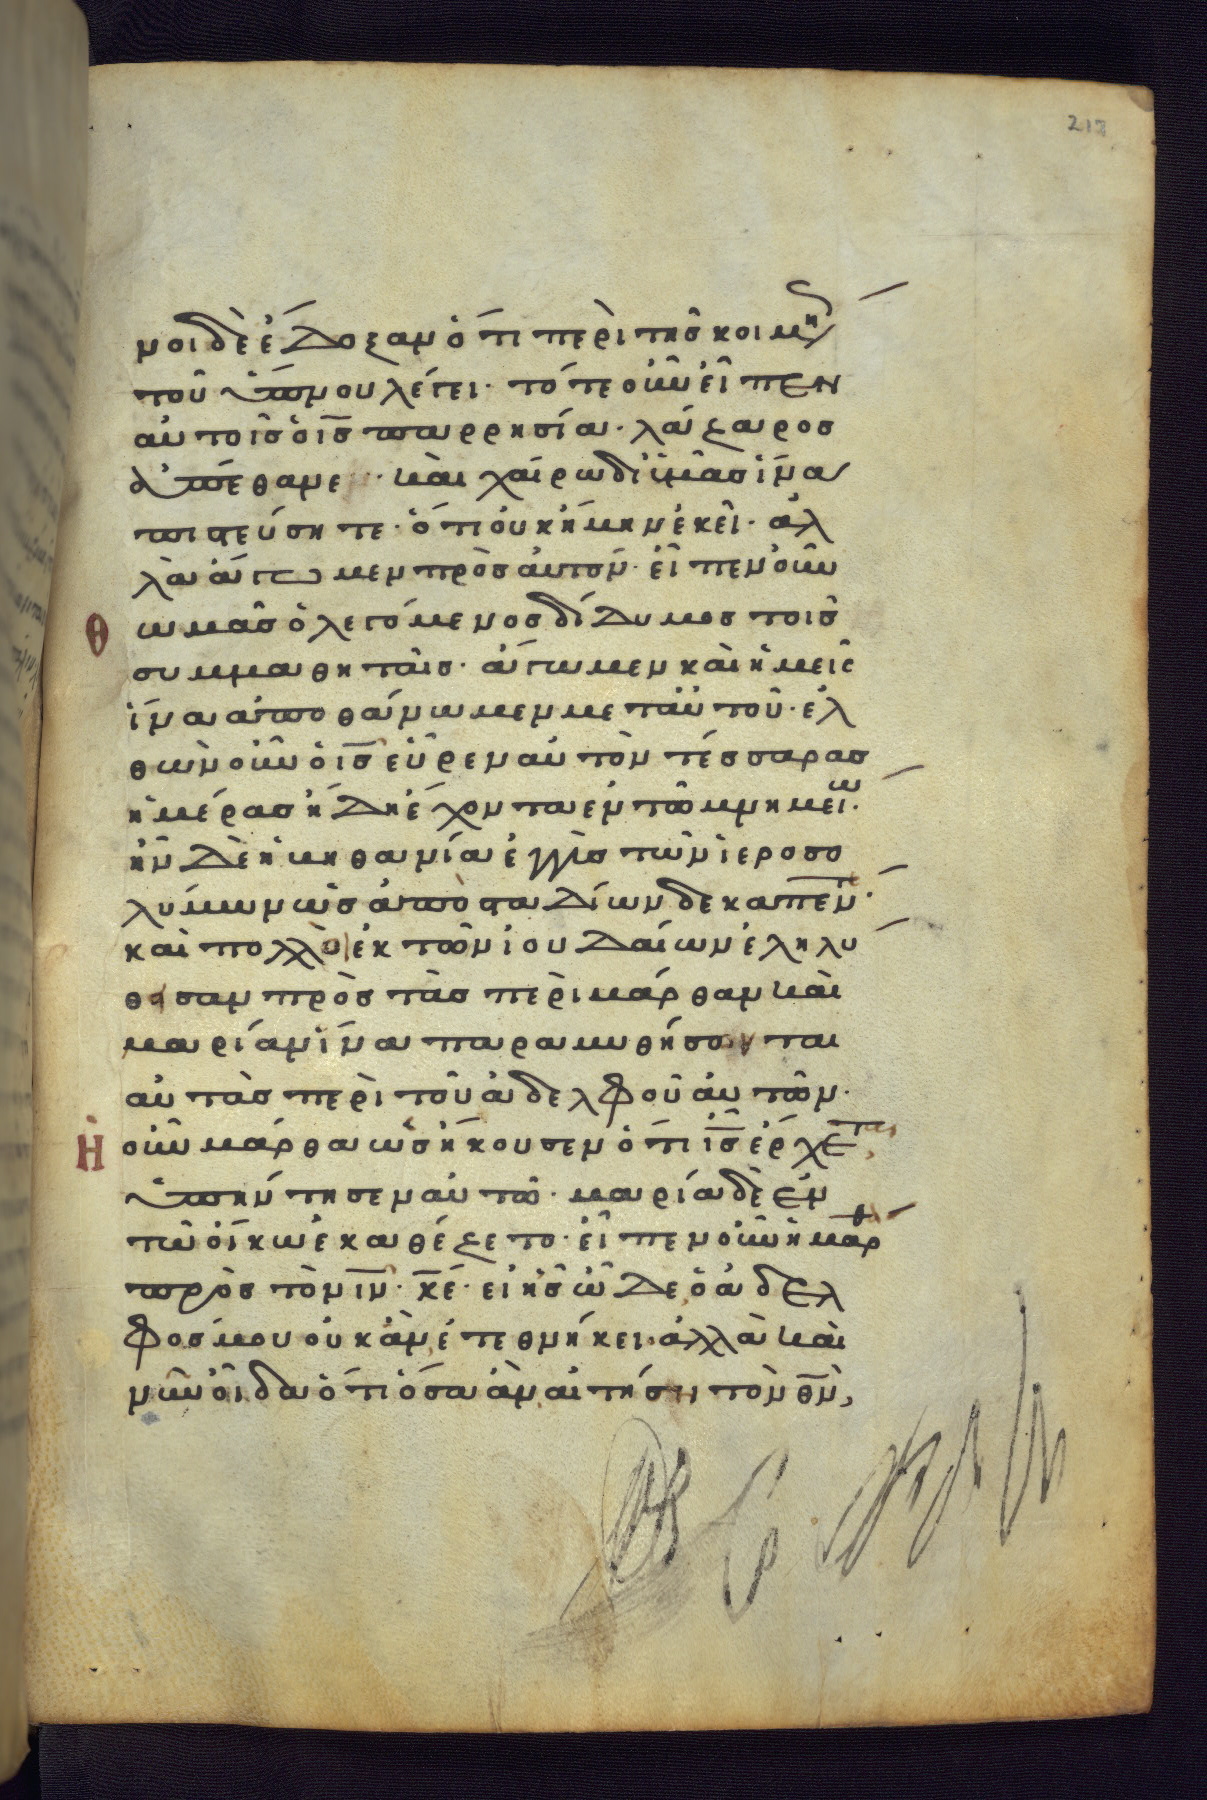 218
νοι δὲ ἔδοξαν ὅτι περὶ τῆς κοιμή
τοῦ ὕπνου λέγει· τότε οὖν εἶπεν
αὐτοῖς ὁ ις̅ παρρησία· λάζαρος
ἀπέθανε· καὶ χαίρω δι ὑμᾶς ἵνα
πιστεύσητε· ὅτι οὐκ ἤμην ἐκεῖ· ἀλ
λὰ ἄγωμεν πρὸς αὐτόν· εἶπεν οὖν
Θωμᾶς ὁ λεγόμενος δίδυμος τοῖς
συμμαθηταῖς· ἄγωμεν καὶ ἡμεῖς
ἵνα ἀποθάνωμεν μετ αὐτοῦ· ἐλ
θὼν οὖν ὁ ις̅ εὗρεν αὐτὸν τέσσαρας
ἡμέρας ἤδη ἔχοντα ἐν τῶ μνημείω·
ἦν δὲ ἡ βηθανία ἐγγὺς τῶν ἱεροσο
λύμων ὡς ἀπὸ σταδίων δεκαπέν·
καὶ πολλοὶ ἐκ τῶν ἰουδαίων ἐληλύ
θεισαν πρὸς τὰς περὶ μάρθαν καὶ
μαρίαν ἵνα παραμυθήσονται
αὐτὰς περὶ τοῦ ἀδελφοῦ αὐτῶν·
Ἡ οὖν μάρθα ὡς ἤκουσεν ὅτι ις̅ ἔρχετ,
ὑπήντησεν αὐτῶ· μαρία δὲ ἐν
τῶ οἴκω ἐκαθέζετο· εἶπεν οὖν ἡ μάρθ
πρὸς τὸν ιν̅· κε̅· εἰ ἦς ὧδε ὁ ἀδελ
φός μου οὐκ ἂν ἐτεθνήκει· ἀλλὰ καὶ
νῦν οἶδα ὅτι ὅσα ἂν αἰτήση τὸν θν̅,